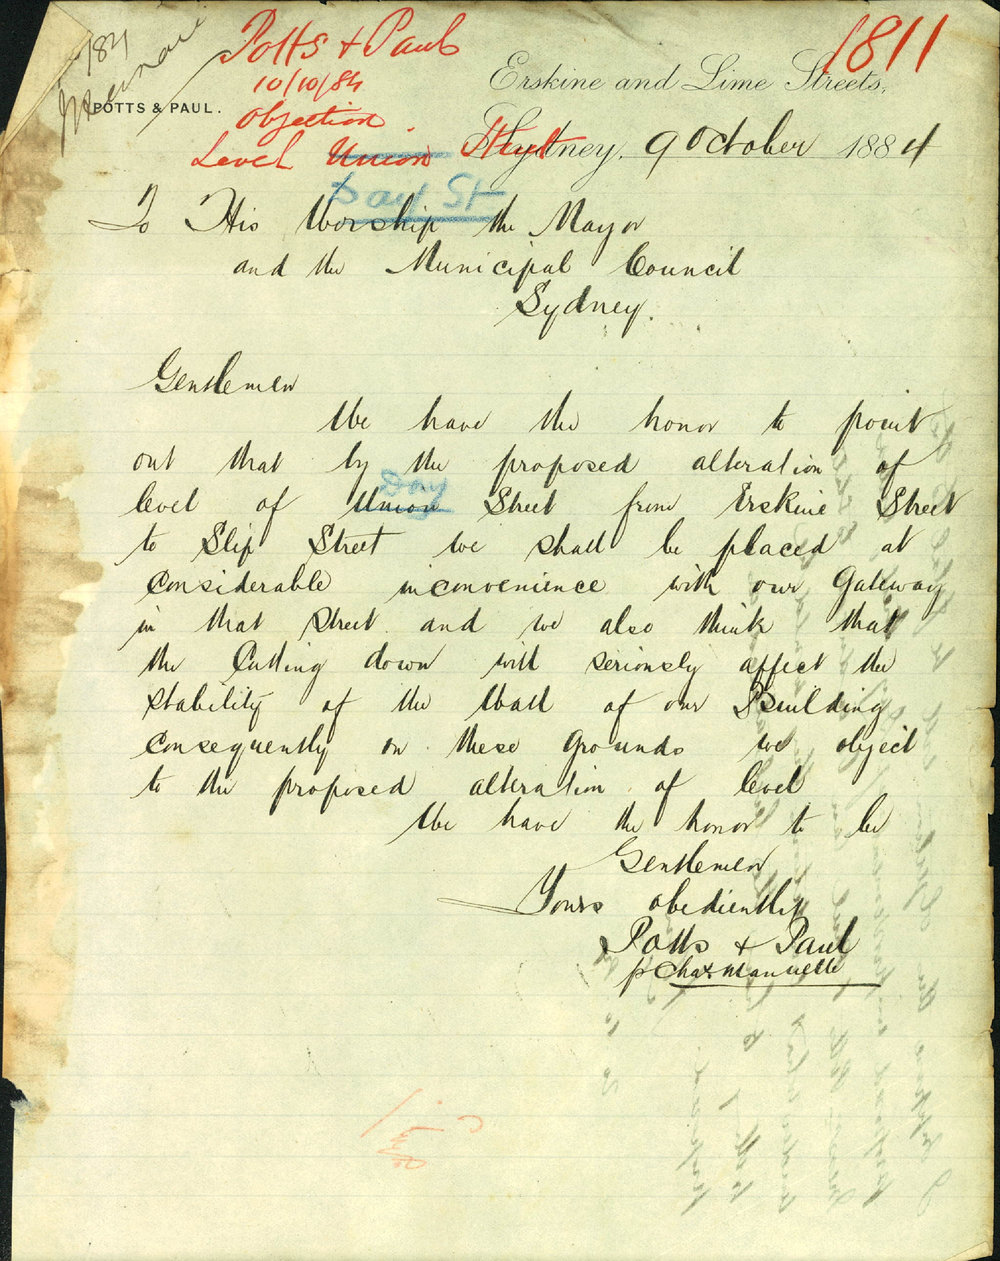 1811
Potts & Paul
10/10/84
Objection.
Level Union Street
Day St
POTTS & PAUL.
Erskine and Lime Streets,
Sydney, 9 October 1884
To His Worship the Mayor
and the Municipal Council
Sydney.
Gentlemen
We have the honor to point
out that by the proposed alteration of
Day
level of Union Street from Erskine Street
to Slip Street we shall be placed at
considerable inconvenience with our Gateway
in that Street and we also think that
the Cutting down will seriously affect the
stability of the Wall of our Building
consequently on these grounds we object
to the proposed alteration of level
We have the honor to be
Gentlemen
Yours obediently
Potts & Paul
p Chas Manuelle